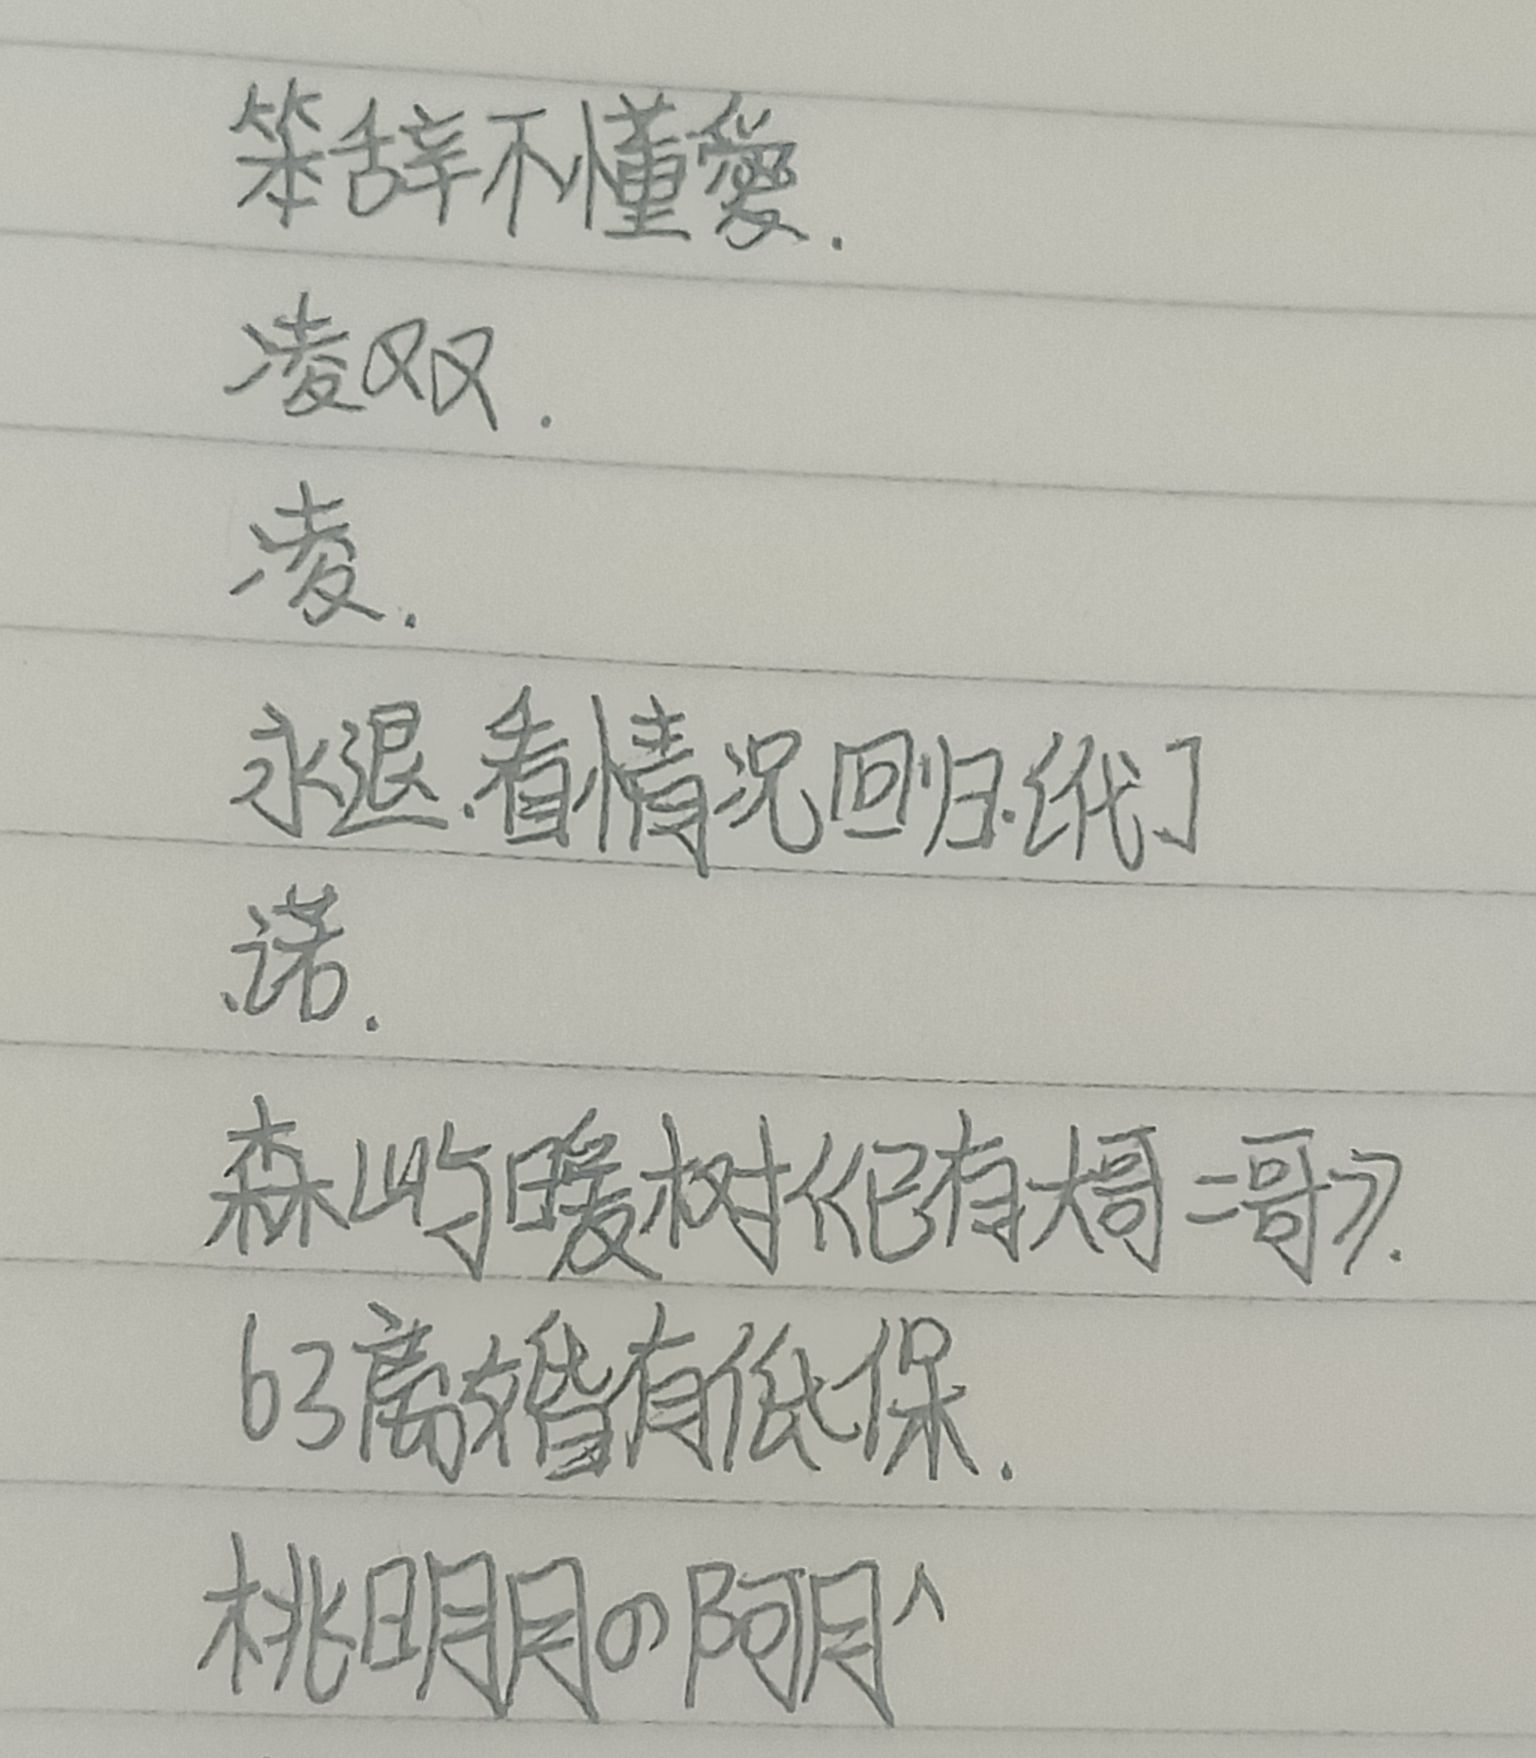 笨辞不懂愛.
凌双.
凌.
永退.看情况回归.纸代了
诺.
森屿暖树《已有大哥二哥》.
63离婚有低保.
桃明月の阿月^